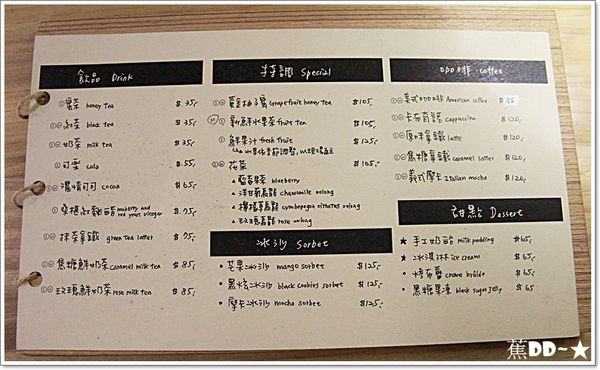 飲品 Drink
蜜茶 honey tea $35.
紅茶 black tea $35.
奶茶 milk tea $35.
可樂 cola $55.
濃情可可 cocoa $65.
桑椹紅麴醋 mulberry and red yeast vinegar $75.
抹茶拿鐵 green tea latter $75.
焦糖鮮奶茶 caramel milk tea $85.
玫瑰鮮奶茶 rose milk tea $85.
特調 Special
葡萄柚蜜 Grapefruit honey tea $105.
新鮮水果茶 fruit tea $105.
鮮果汁 fresh fruit $125.
水果依季節調整,以現場為主
花茶 $105.
藍莓果茶 blueberry
洋甘菊烏龍 chamomile oolong
檸檬草烏龍 cymbopogon citratus oolong
玫瑰烏龍 rose oolong
冰沙 Sorbet
芒果冰沙 mango sorbet $125.
黑炫冰沙 black cookies sorbet $125.
摩卡冰沙 mocha sorbet $125.
咖啡 coffee
美式咖啡 American coffee $85
卡布奇諾 cappuccino $120.
原味拿鐵 latte $120.
焦糖拿鐵 caramel latte $120.
義式摩卡 Italian mocha $120.
甜點 Dessert
★ 手工奶酪 milk pudding $65.
★ 冰淇淋 ice cream $65.
烤布蕾 creme brulee $65.
黑糖果凍 black sugar jelly $65.
蕉DD~★